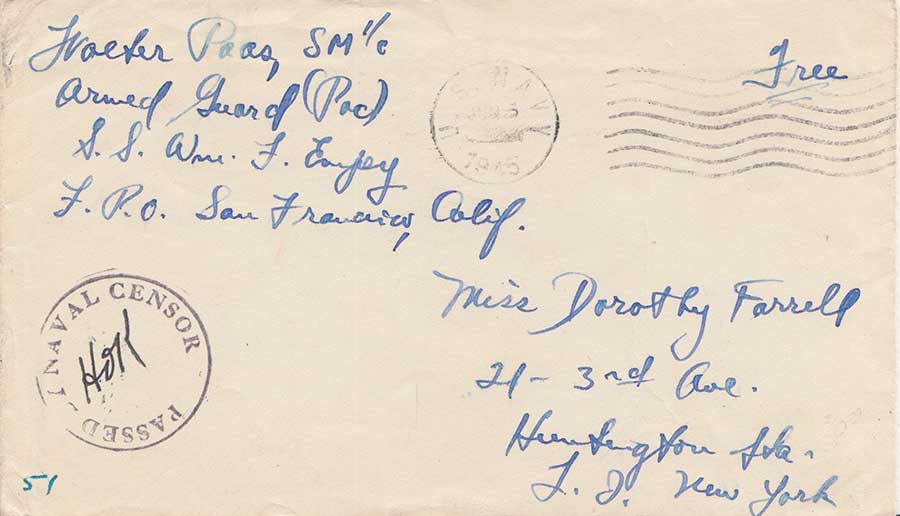 Walter Paas, SM 1/c
Armed Guard (Pac)
S. S. Wm. F. Empey
F. P. O. San Francisco, Calif.
Free
U.S. NAVY
1945
Miss Dorothy Farrell
21 - 3rd Ave.
Huntington Sta.
L. I. New York
PASSED NAVAL CENSOR
HOK
51